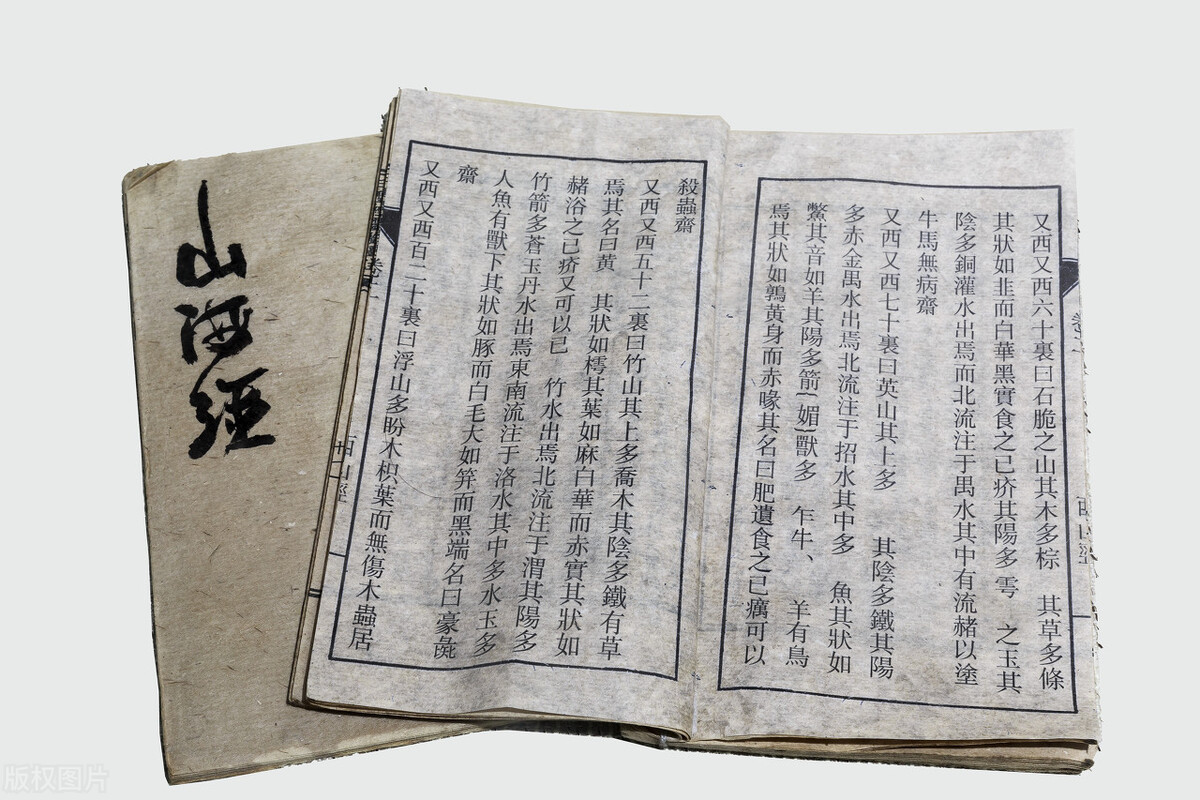 山海經
又西又西六十裏曰石脆之山其木多棕　其草多條
其狀如韭而白華黑實食之已疥其陽多雩　之玉其
陰多銅灌水出焉而北流注于禺水其中有流赭以塗
牛馬無病齋
又西又西七十裏曰英山其上多　其陰多鐵其陽
多赤金禺水出焉北流注于招水其中多　魚其狀如
鱉其音如羊其陽多箭{媚}獸多　乍牛、　羊有鳥
焉其狀如鶉黃身而赤喙其名曰肥遺食之已癘可以
殺蟲齋
又西又西五十二裏曰竹山其上多喬木其陰多鐵有草
焉其名曰黃　其狀如樗其葉如麻白華而赤實其狀如
赭浴之已疥又可以已　竹水出焉北流注于渭其陽多
竹箭多蒼玉丹水出焉東南流注于洛水其中多水玉多
人魚有獸下其狀如豚而白毛大如笄而黑端名曰豪彘
齋
又西又西百二十裏曰浮山多盼木枳葉而無傷木蟲居
西山經
版权图片